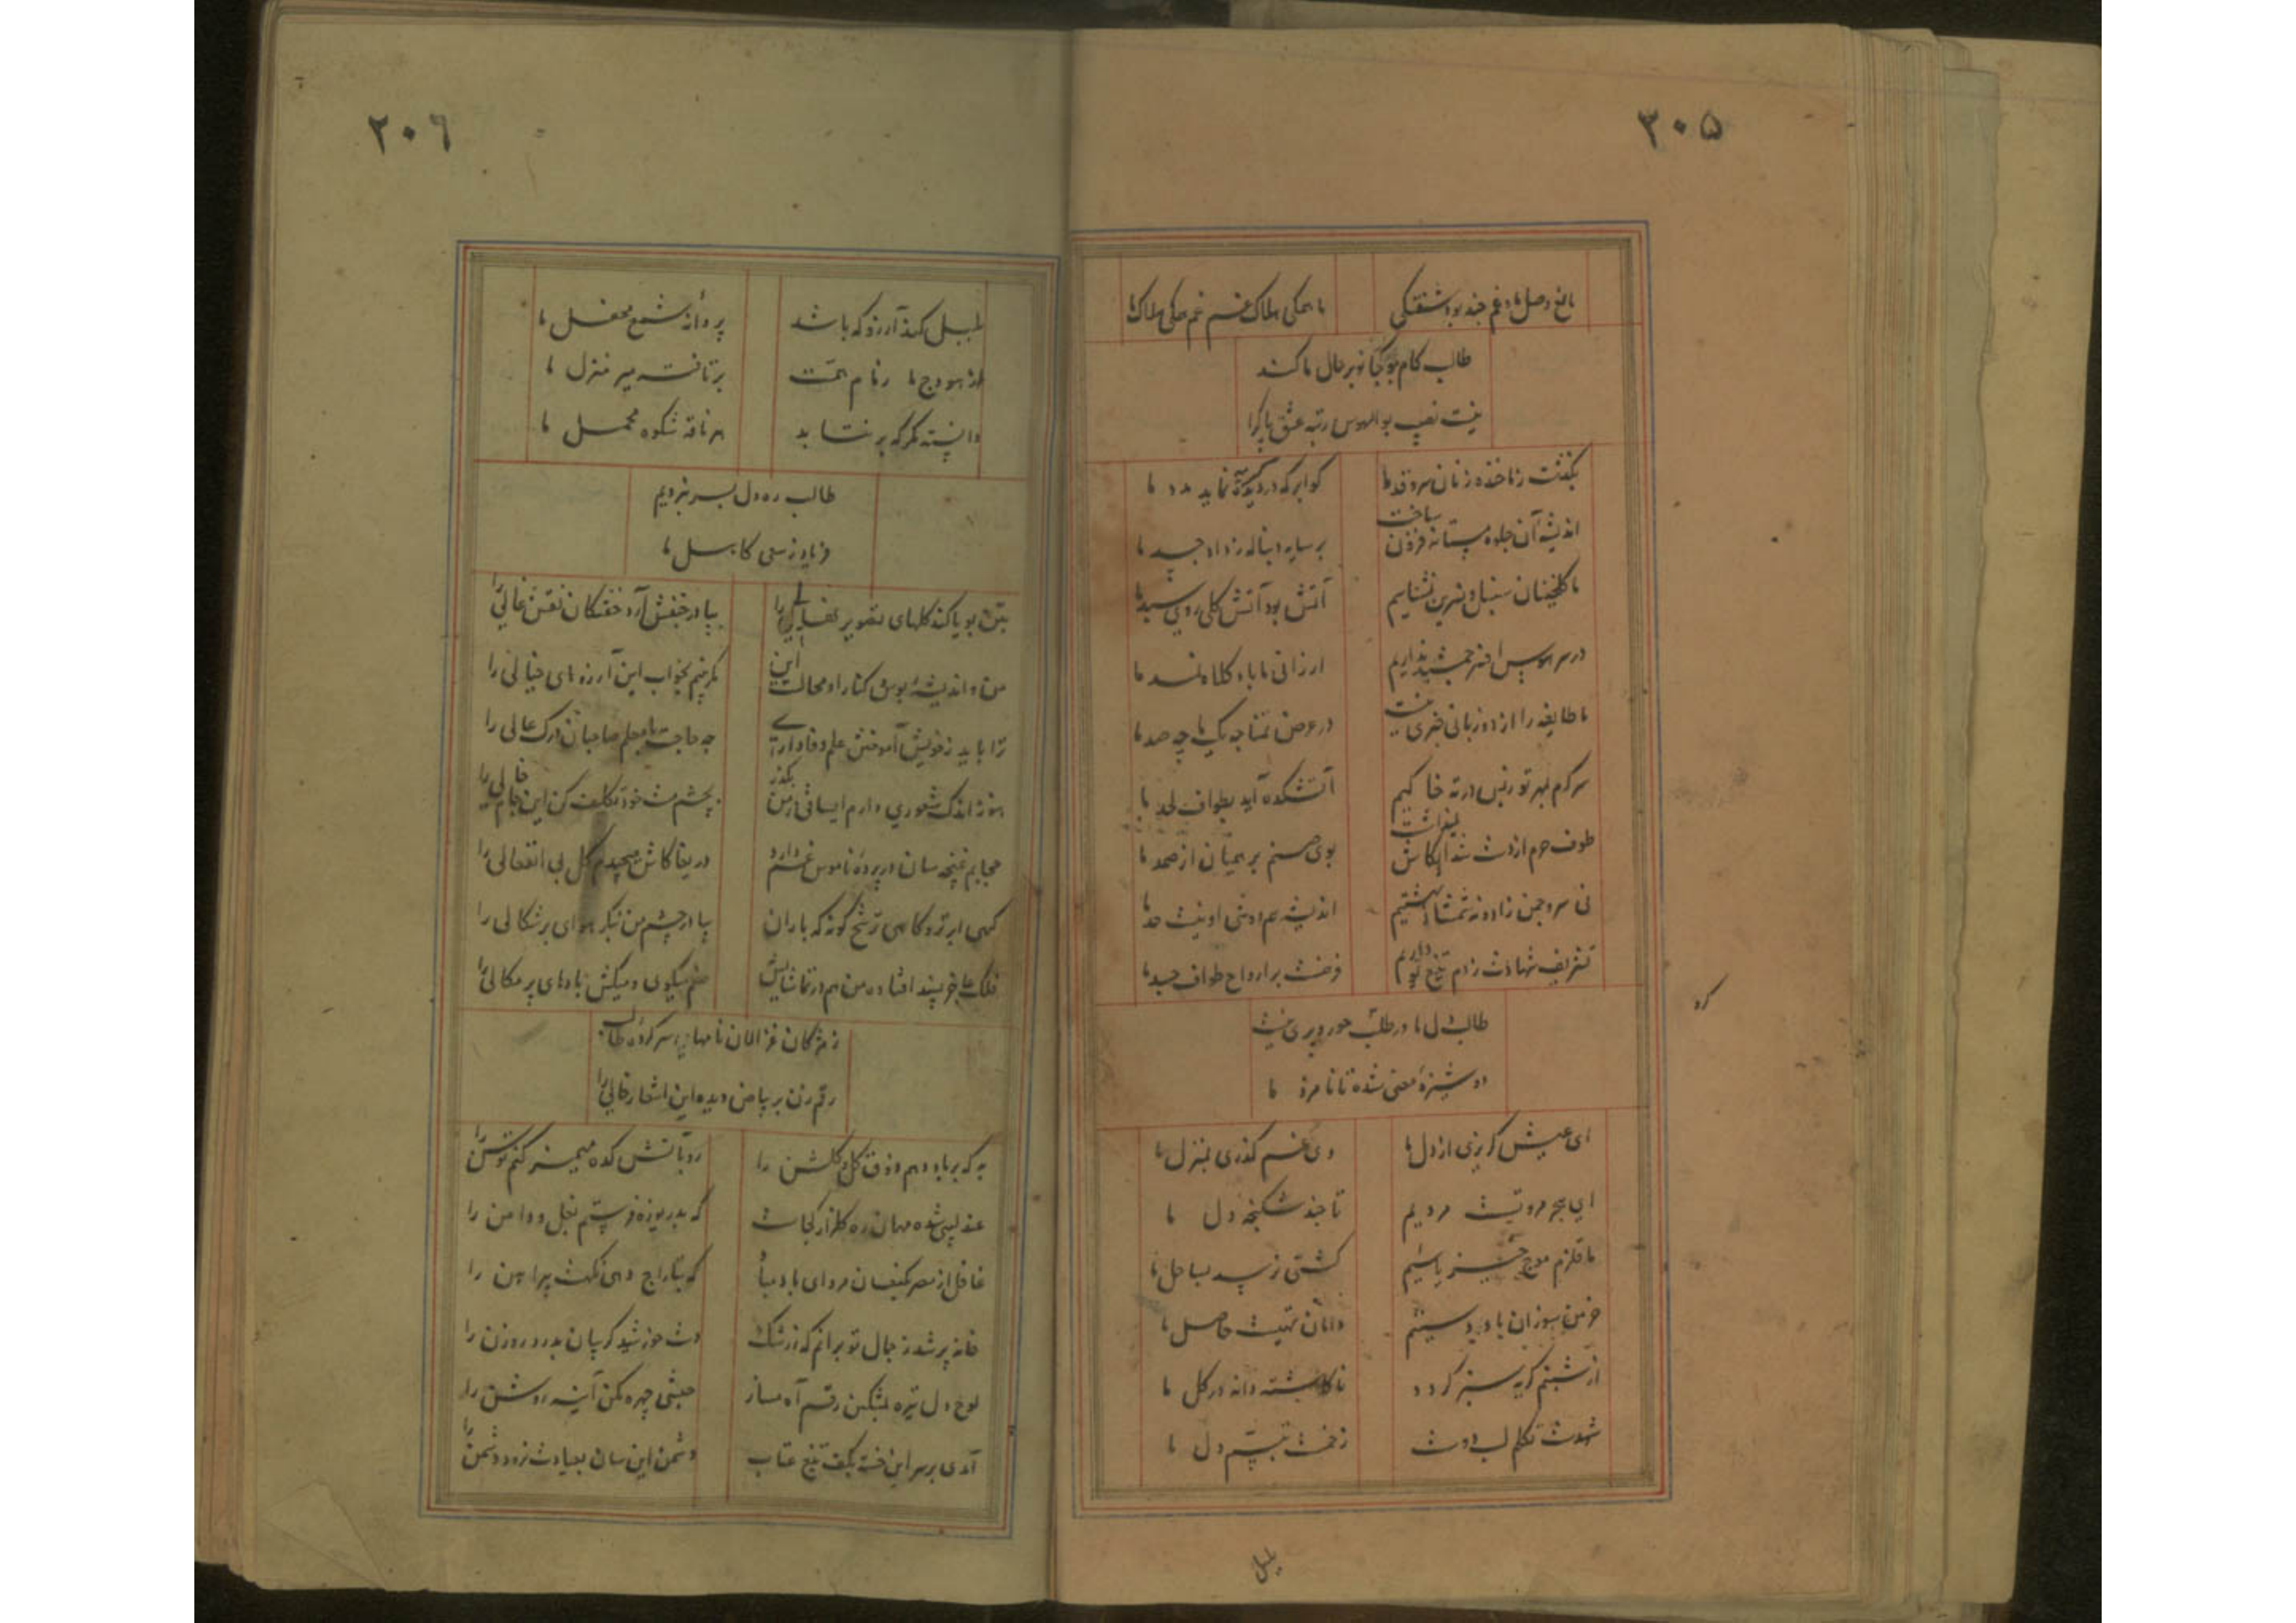 ۳۰۵
باغ وصل ما و غم چند بود شفتگی ما همگی هلاک غم غم همگی هلاک ما
طالب کام بو کجا تو بر حال ما کند
نیست نصیب بوالهوس رتبه عشق پاک را
بگذشت ز ما خنده زنان سرو قد ما کو ابر که در گریه نماید مدد ما
اندیشه آن جلوه مستانه فزون ساخت بر سایه دنباله ز داد حسد ما
ما گلخنیان سنبل و نسرین نشناسیم آتش بود آتش گل روی سبد ما
در سر هوس افسر جمشید نداریم ارزانی ما باد کلاه نمد ما
ما طایفه را از دو زبانی خبری نیست در عرض تمنا چه یک ما چه صد ما
سرگرم بمهر تو ز بس در ته خاکیم آتشکده آید بطواف لحد ما
طوف حرم از دست شد ایکاش نمیداشت بوی صنم برهمنان از صمد ما
نی سرو چمن زاده نه شمشاد بهشتیم اندیشه عمرو شی او نیست حد ما
تشریف شهادت ز دم تیغ تو داریم فرضست بر ارواح طواف جسد ما
کرد
طالب دل ما در طلب حور و پری نیست
دوشیزه معنی شده تا نامزد ما
ای عیش گریزی از دل ما وی غم گذری بمنزل ما
ای هجر مروتیست مردیم تا چند شکنجه دل ما
ما قلزم موج خیز یاسیم کشتی نرسد بساحل ما
خرمن سوزان باد دستیم دامان تهیست حاصل ما
از شبنم گریه سبز گردد ناکاشته دانه در گل ما
شهدست تکلم لب دوست زخمست تبسم دل ما
بلبل
۲۰۶
بلبل کند آرزو که باشد پروانه شمع محفل ما
از هودج ما زمام همت برتافته سر منزل ما
دانسته مگر که بر نتابد هر ناقه شکوه محمل ما
طالب ره دل بسر نبردیم
فریاد ز سعی کاهل ما
بتن بویا کند گلهای تصویر نهالی را بپا در جنبش آرد خفتگان نقش قالی را
من و اندیشه بوس و کنار او محالست این مگر بینم بخواب این آرزوهای خیالی را
ترا باید ز خویش آموختن علم وفاداری چه حاجت با معلم صاحبان درک عالی را
هنوز اندک شعوری دارم ایساقی ز من بگذر بچشم مست خود تکلیف کن این جام خالی را
حجابم غنچه سان در پرده ناموس غم دارد دریغا کاش میچیدم گل بی انفعالی را
گهی ابر تر و گاهی ترشح گونه گه باران بیا در چشم من بنگر هوای برشکالی را
فلک عاجز پسند افتاده من هم در تماشایش غم میگوی و میکش بادهای پرمگالی را
ز مژگان غزالان خامها بر سر کرده طالب
رقم زن بر بیاض دیده این اشعار حالی را
به که بر باد دهم ذوق گل و گلشن را رو بآتش کده مهمیز کنم توسن را
عندلیبی شده مهمان ره گلزار کجاست که بدریوزه فرستم بغل و دامن را
غافل از مصر بکنعان مرو ای باد صبا که بتاراج دهی نکهت پیراهن را
خانه پر شد ز جمال تو برانم که ز رشک دست خورشید گریبان بدرد روزن را
لوح دل تیره بتسکین رقم آه مساز حبشی چهره مکن آینه روشن را
آمدی بر سر این خسته بکف تیغ عتاب دشمن این سان بعیادت نرود دشمن را